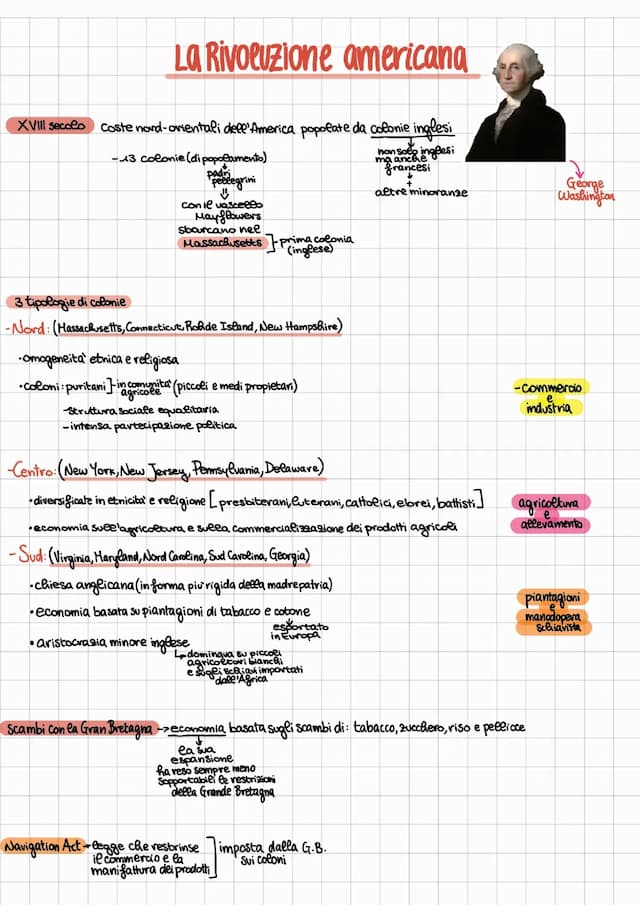 La Rivoluzione americana
George
Washington
XVIII secolo coste nord-orientali dell'America popolate da colonie inglesi
non solo inglesi
ma anche
francesi
+
altre minoranze
-13 colonie (di popolamento)
padri
pellegrini
con il vascello
Mayflowers
sbarcano nel
Massachusetts
prima colonia
(inglese)
3 tipologie di colonie
-Nord: (Massachusetts, Connecticut, Rohde Island, New Hampshire)
•omogeneità etnica e religiosa
•coloni: puritani] - in comunità agricole (piccoli e medi propietari)
-struttura sociale equalitaria
-intensa partecipazione politica
-commercio
e
industria
-Centro: (New York, New Jersey, Pennsylvania, Delaware)
•diversificate in etnicità e religione [presbiterani, luterani, cattolici, ebrei, battisti]
•economia sull'agricoltura e sulla commercializzazione dei prodotti agricoli
agricoltura
e
allevamento
-Sud: (Virginia, Maryland, Nord Carolina, Sud Carolina, Georgia)
•chiesa anglicana (in forma più rigida della madrepatria)
•economia basata su piantagioni di tabacco e cotone
esportato
in Europa
•aristocrazia minore inglese
dominava su piccoli
agricoltori bianchi
e sugli schiavi importati
dall'Africa
piantagioni
e
manodopera
schiavista
scambi con la Gran Bretagna → economia basata sugli scambi di: tabacco, zucchero, riso e pellicce
la sua
espansione
ha reso sempre meno
sopportabili le restrizioni
della Grande Bretagna
Navigation Act - legge che restrinse
il commercio e la
manifattura dei prodotti
imposta dalla G.B.
sui coloni